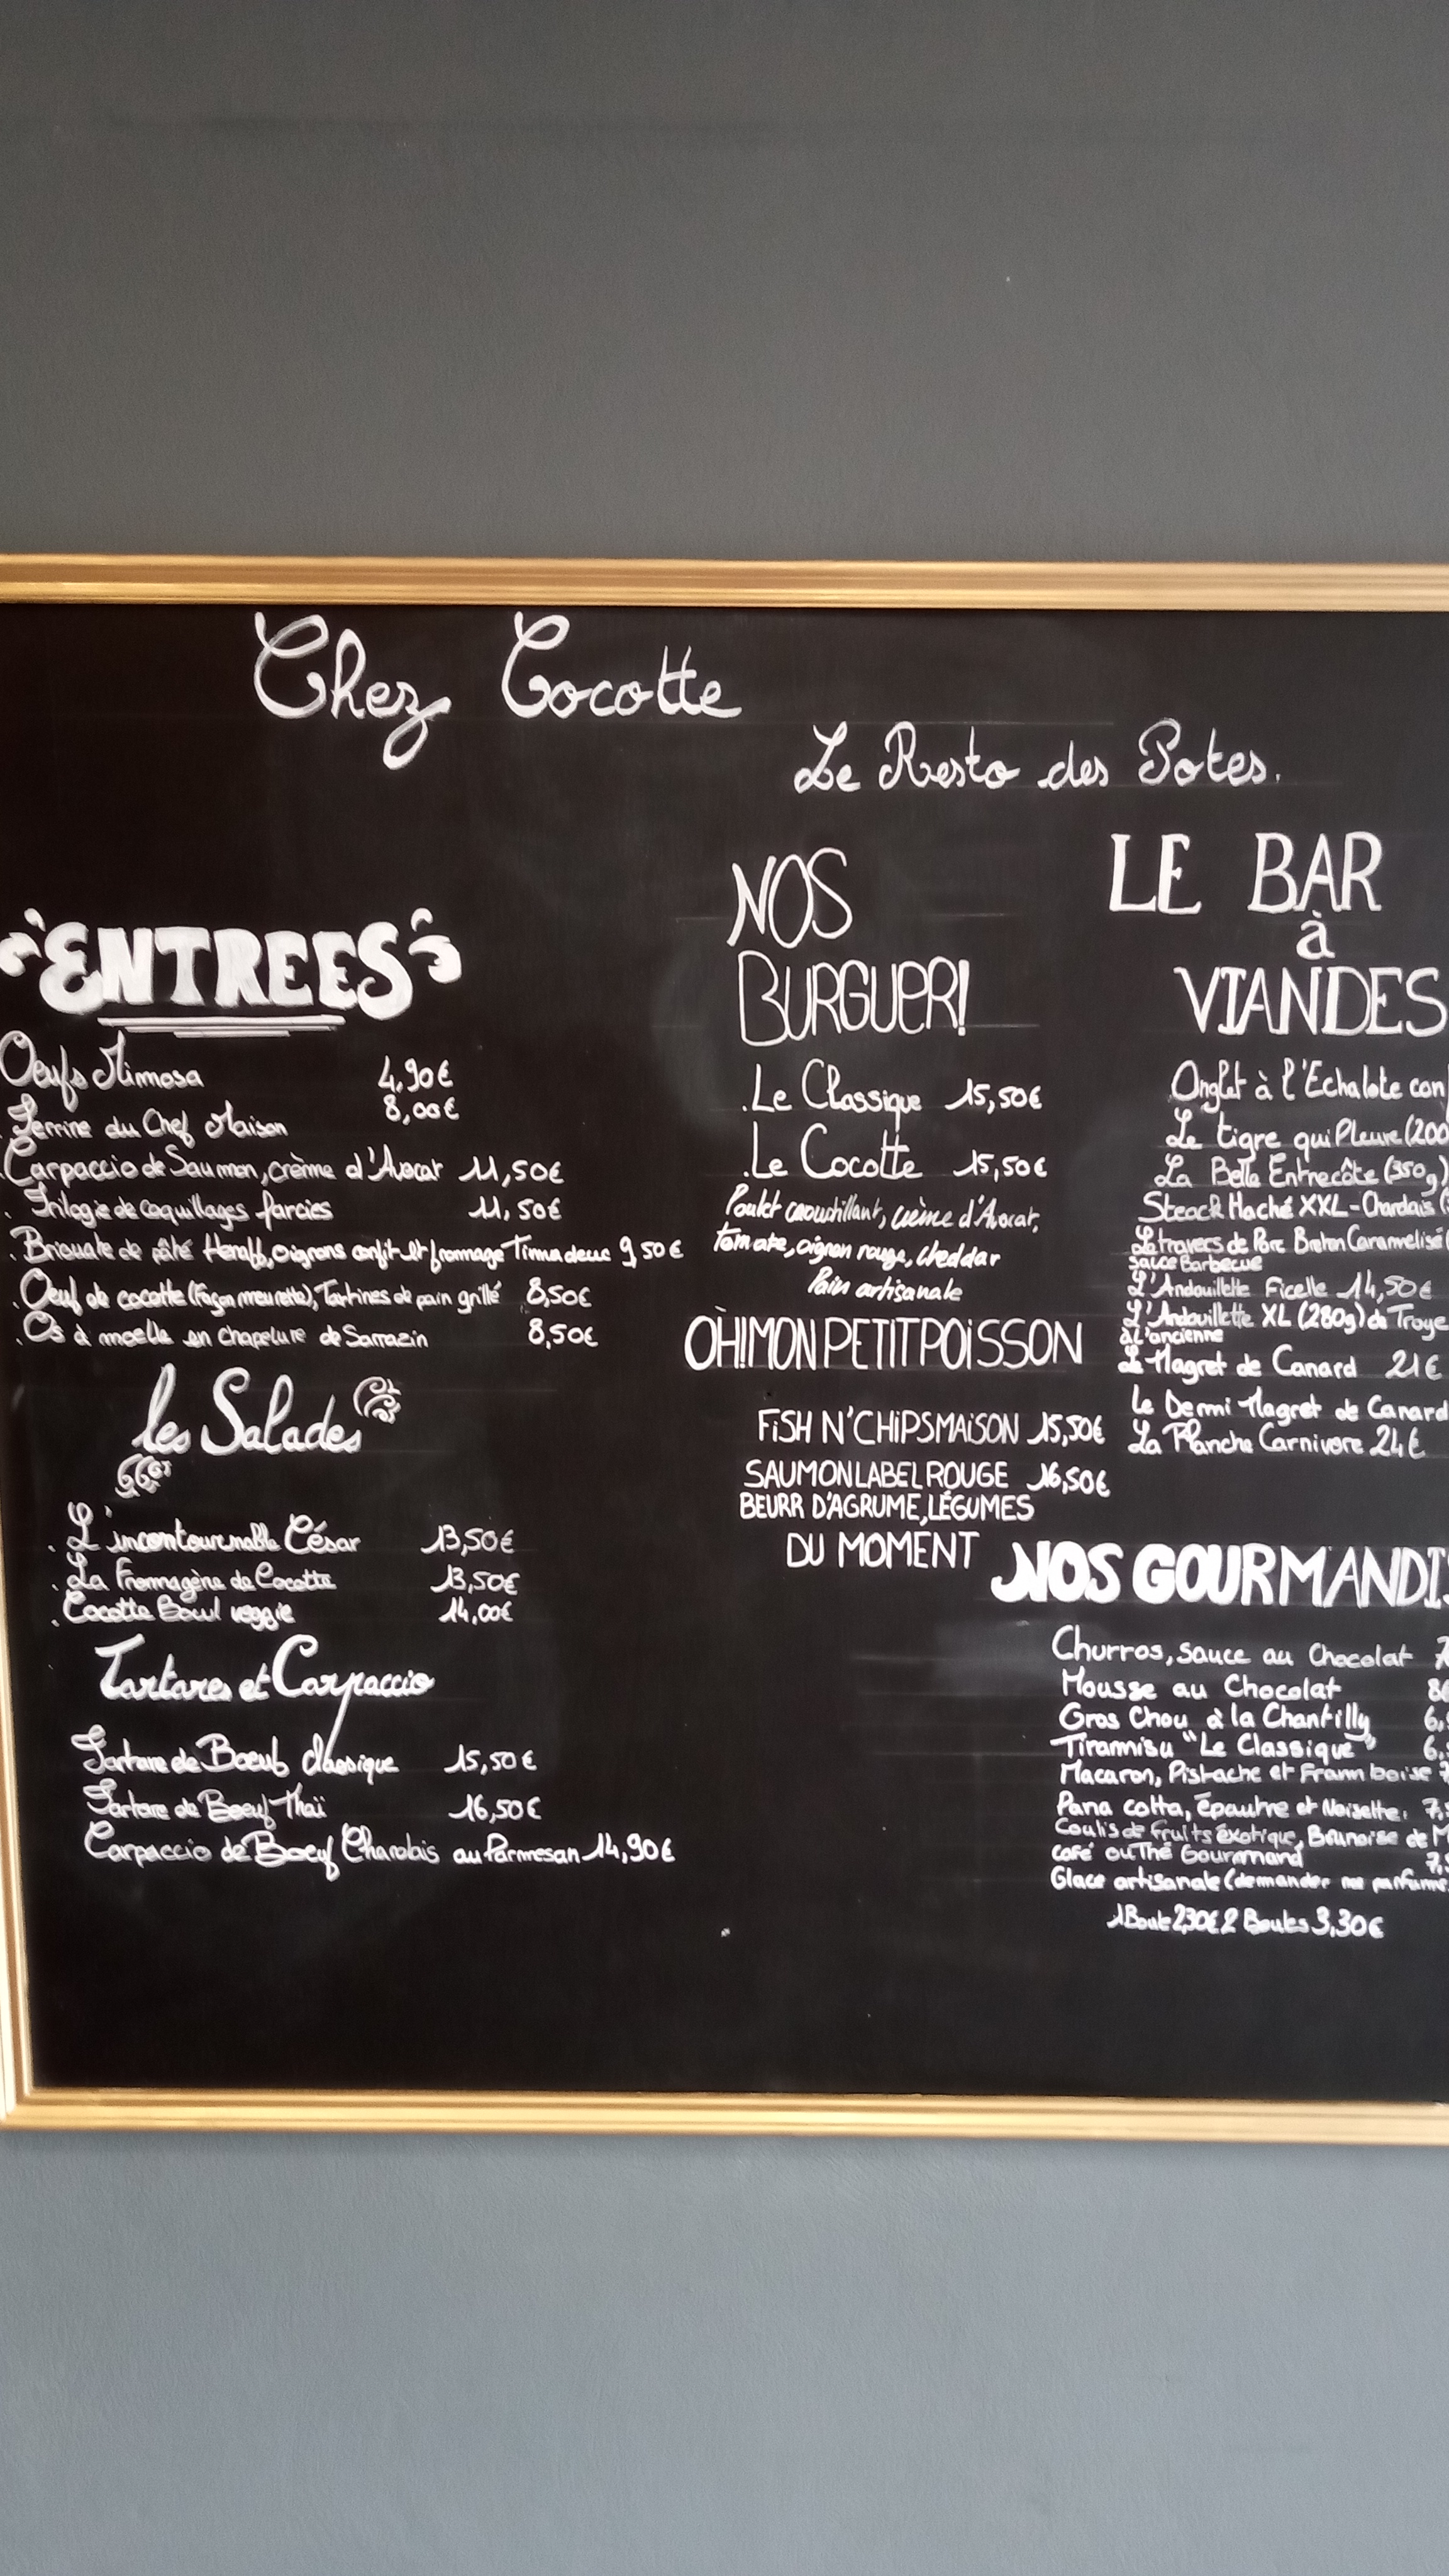 Chez Cocotte
Le Resto des Potes.
ENTREES
Oeufs Mimosa 4,90€
Terrine du Chef Maison 8,00€
Carpaccio de Saumon, crème d'Avocat 11,50€
. Trilogie de coquillages farcies 11,50€
. Briouate de pâté Henaff, oignons confit et fromage Timmadeuc 9,50€
. Oeuf de cocotte (façon meurette), Tartines de pain grillé 8,50€
. Os à moelle en chapelure de Sarrazin 8,50€
les Salades
. L'incontournable César 13,50€
. La Fromagère de Cocotte 13,50€
. Cocotte Bowl veggie 14,00€
Tartares et Carpaccio
Tartare de Boeuf classique 15,50€
Tartare de Boeuf Thaï 16,50€
Carpaccio de Boeuf Charolais au Parmesan 14,90€
NOS
BURGUER!
.Le Classique 15,50€
.Le Cocotte 15,50€
Poulet croustillant, crème d'Avocat,
tomate, oignon rouge, cheddar
Pain artisanale
OH!MON PETIT POiSSON
FiSH N'CHIPS MAiSON 15,50€
SAUMON LABEL ROUGE 16,50€
BEURR D'AGRUME, LÉGUMES
DU MOMENT
LE BAR
à
VIANDES
Onglet à l'Echalote con
Le tigre qui Pleure (200
La Belle Entrecôte (350g)
Steack Haché XXL-Charolais (
Le travers de Porc Breton Caramelisé
sauce Barbecue
L'Andouillette Ficelle 14,50€
L'Andouillette XL (280g) de Troye
à l'ancienne
Le Magret de Canard 21€
Le Demi Magret de Canard
La Planche Carnivore 24€
NOS GOURMANDI
Churros, sauce au Chocolat 7
Mousse au Chocolat 8€
Gros Chou à la Chantilly 6,
Tiramisu "Le Classique" 6,
Macaron, Pistache et Framboise 7
Pana cotta, Épautre et Noisette. 7,
Coulis de fruits éxotique, Brunoise de M
café ou Thé Gourmand 7,
Glace artisanale (demander nos parfums
1 Boule 2,30€ 2 Boules 3,30€